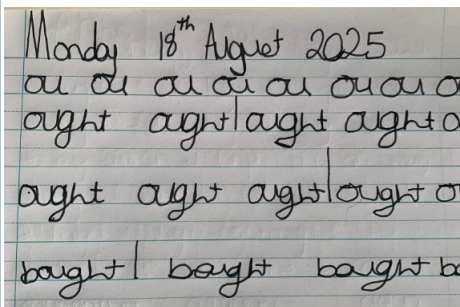 Monday 18th August 2025
ou ou ou ou ou ou ou o
ought ought | ought ought o
ought ought ought | ought o
bought | bought bought bo